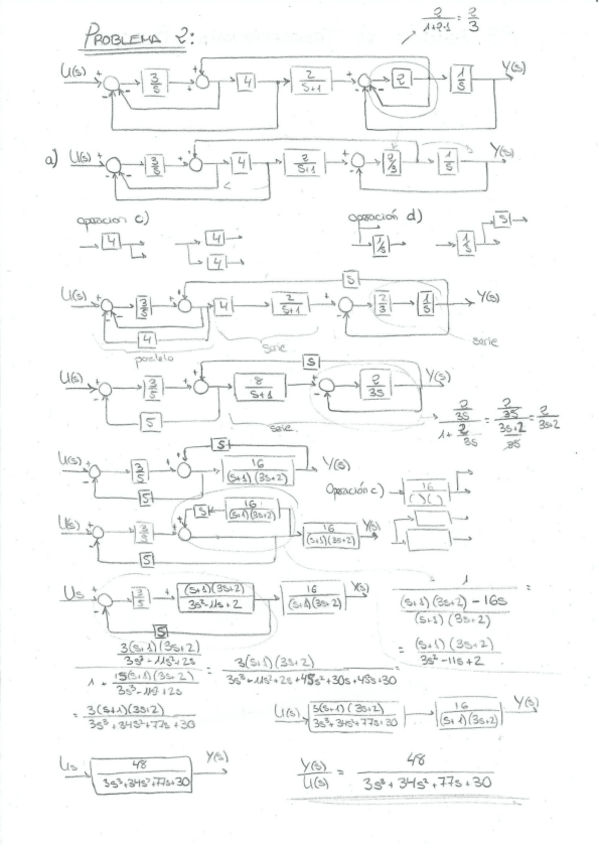 2/(1+2·1) = 2/3
PROBLEMA 2:
U(s) + - - 3/s + + 4 2/(s+1) + - - 2 1/s Y(s)
a) U(s) + - - 3/s + + 4 2/(s+1) + - 2/3 1/s Y(s)
operación c) operación d)
4 4 1/s 1/s s
4
s
U(s) + - - 3/s + + 4 2/(s+1) + - 2/3 1/s Y(s)
4 serie serie
paralelo
s
U(s) + - 3/s + + 8/(s+1) + - 2/3s Y(s)
5 serie (2/3s)/(1 + 2/3s) = (2/3s)/((3s+2)/3s) = 2/(3s+2)
s
U(s) + - 3/s + + 16/((s+1)(3s+2)) Y(s)
5 Operación c) 16/( )( )
U(s) + - 3/s + + s 16/((s+1)(3s+2)) 16/((s+1)(3s+2)) Y(s)
5
Us + - 3/s (s+1)(3s+2)/(3s²-11s+2) 16/((s+1)(3s+2)) Y(s) 1/(((s+1)(3s+2) - 16s)/((s+1)(3s+2))) =
5 = (s+1)(3s+2)/(3s²-11s+2)
(3(s+1)(3s+2)/(3s³-11s²+2s))/(1 + 15(s+1)(3s+2)/(3s³-11s²+2s)) = 3(s+1)(3s+2)/(3s³-11s²+2s+45s²+30s+45s+30) =
= 3(s+1)(3s+2)/(3s³+34s²+77s+30) U(s) 3(s+1)(3s+2)/(3s³+34s²+77s+30) 16/((s+1)(3s+2)) Y(s)
Us 48/(3s³+34s²+77s+30) Y(s) Y(s)/U(s) = 48/(3s³+34s²+77s+30)